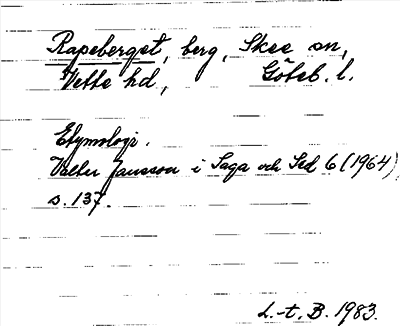 Rapeberget, berg, Skee sn,
Vette hd, Göteb. l.
Etymologi.
Valter Jansson i Saga och Sed 6 (1964),
s. 137.
L.-t, B. 1983.